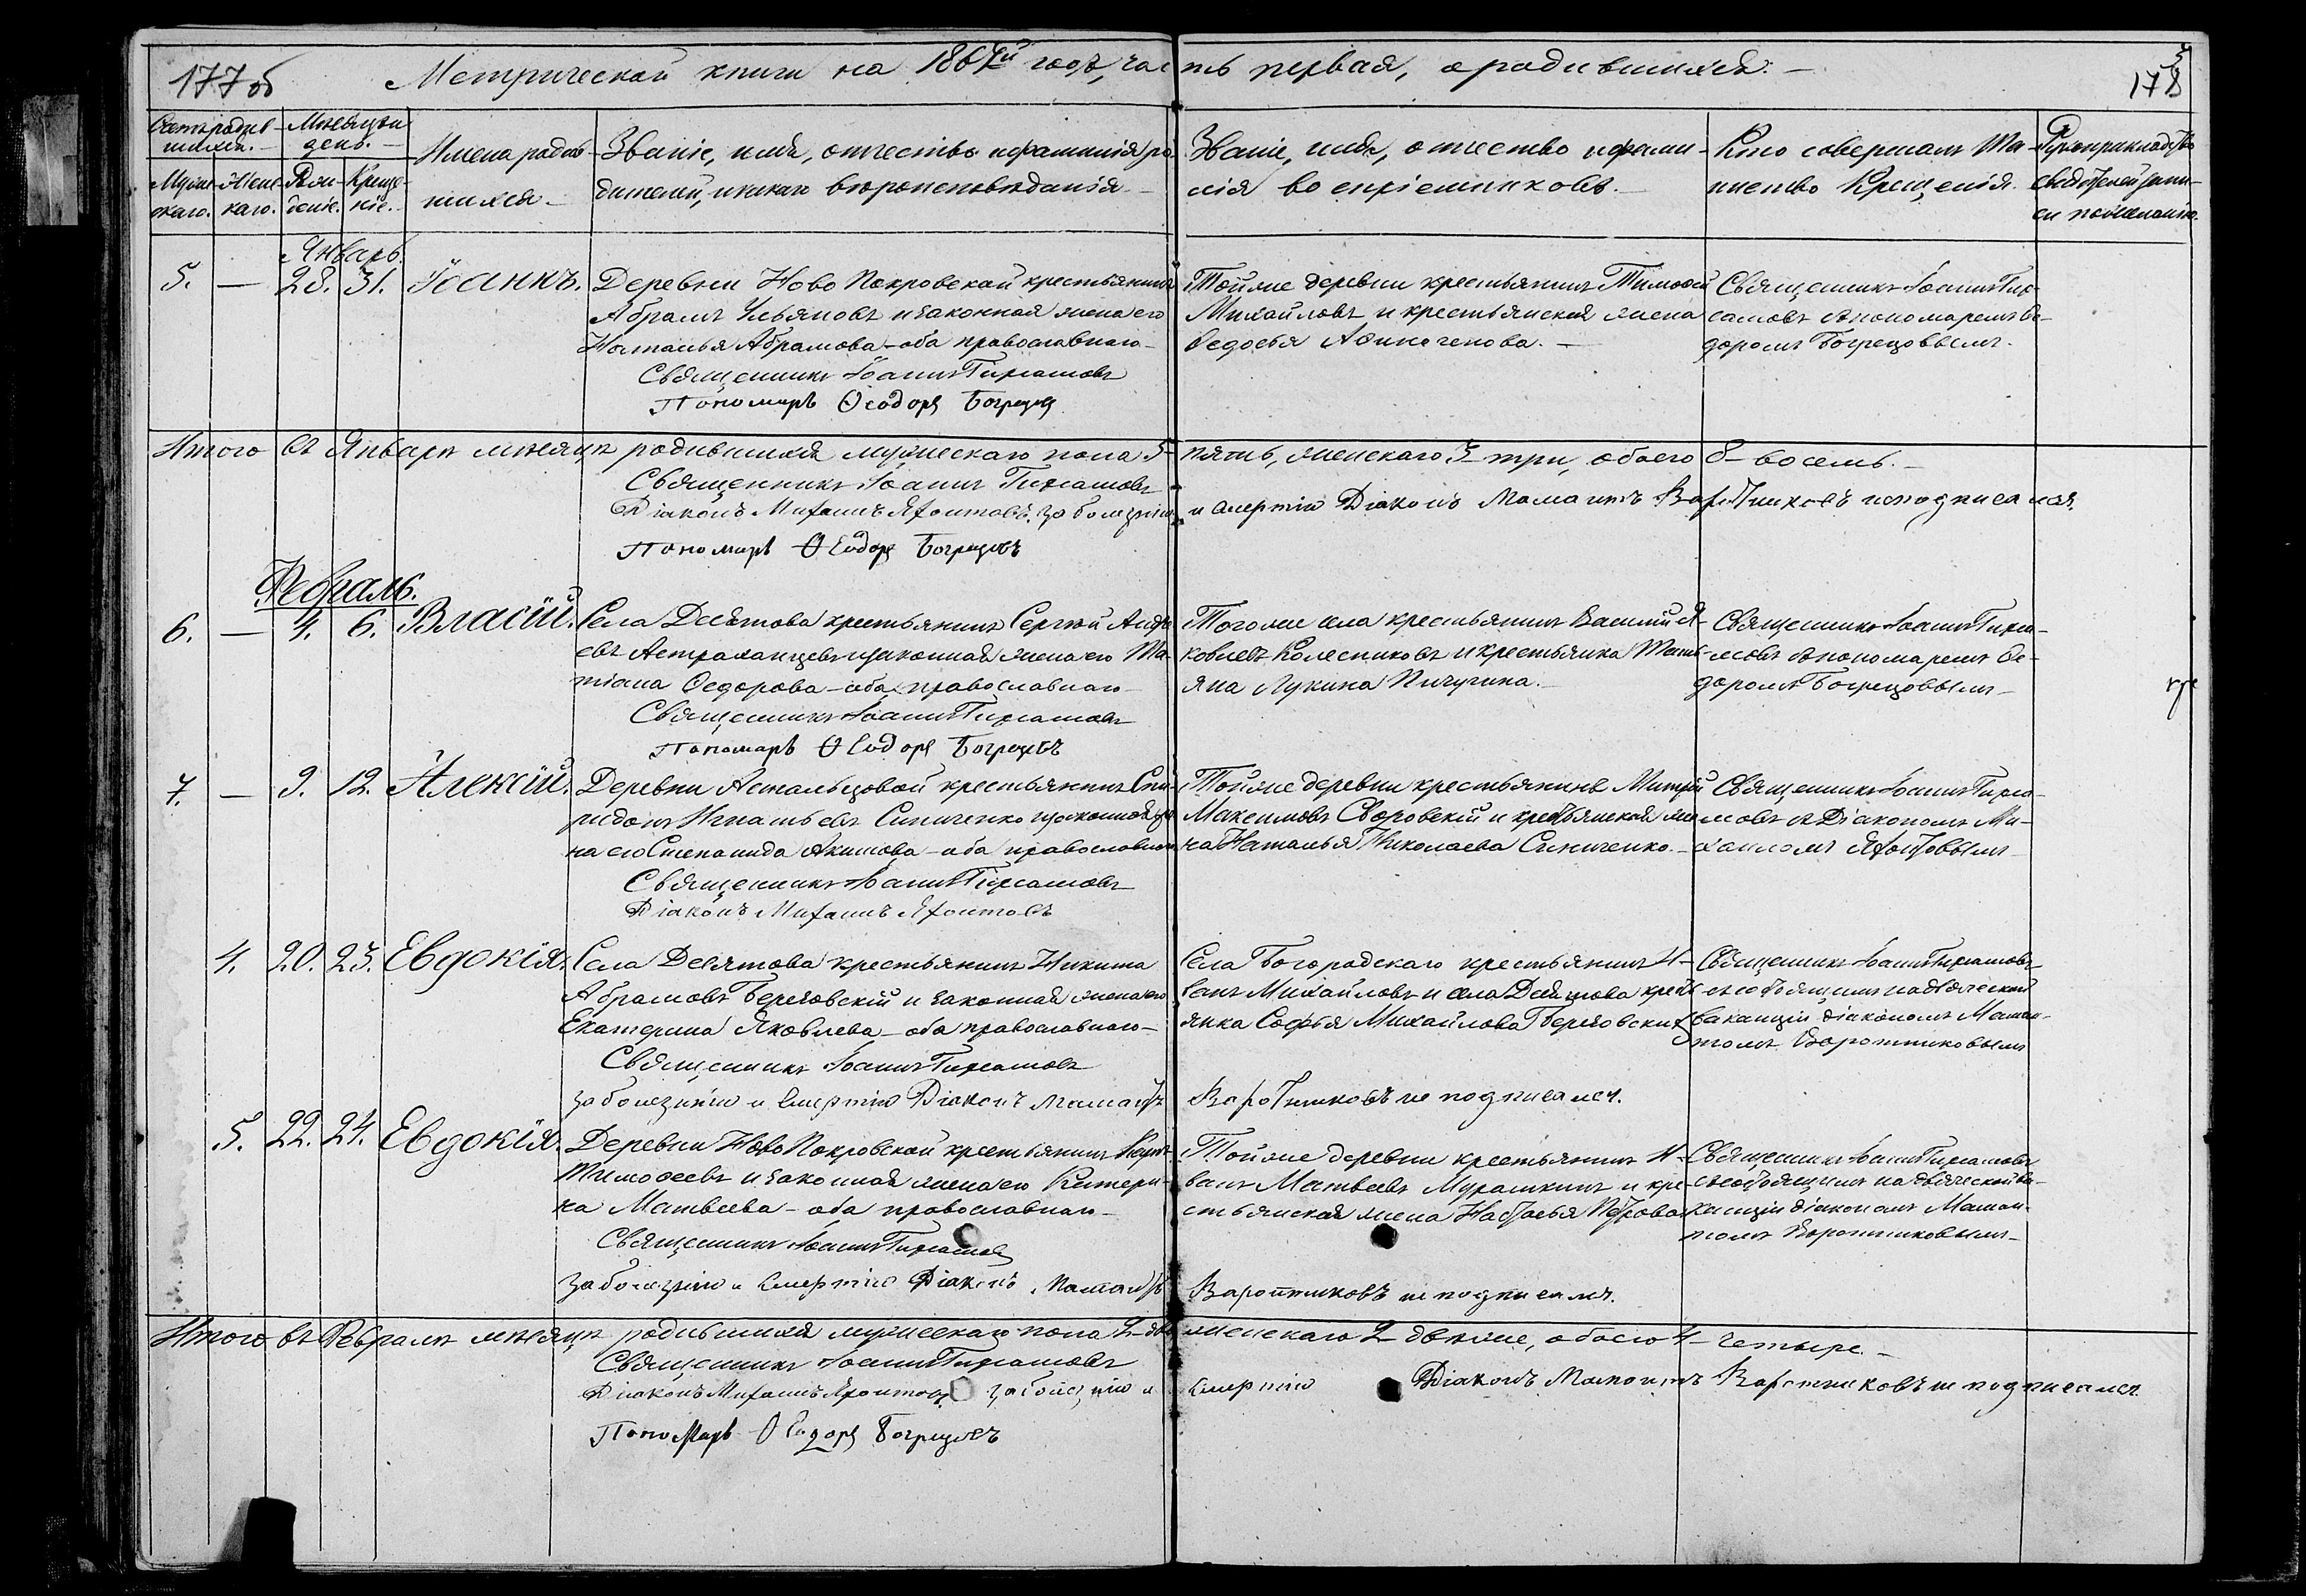 177об
Метрической книги на 1867й годъ, часть первая, о родившихся.
3
178
Счетъ родившихся. Мѣсяцъ и день. Имена родившихся. Званіе, имя, отчество и фамилія родителей, и какого вѣроисповѣданія. Званіе, имя, отчество и фамилія воспріемниковъ. Кто совершалъ Таинство Крещенія. Рукоприкладство свидѣтелей записи по желанію.
Мужескаго. Женскаго. Рожденіе. Крещеніе.
Январь.
5. — 28. 31. Іоаннъ.
Деревни Ново Покровской крестьянинъ
Абрамъ Ульяновъ и законная жена его
Наталья Абрамова – оба православнаго
Священникъ Іоаннъ
Пономарь Ѳеодоръ Богрецов
Тойже деревни крестьянинъ Тимоѳей
Михайловъ и крестьянская жена
Ѳедосья
Священникъ Іоаннъ
съ пономаремъ Ѳе-
доромъ Богрецовымъ.
Итого въ Январѣ мѣсяцѣ родившихся мужескаго пола 5 – пять, женскаго 3 – три, обоего 8 – восемь. –
Священникъ Іоаннъ
Діаконъ Михаилъ за болезнію и смертію Діаконъ Мамантъ Воротниковъ неподписался.
Пономарь Ѳеодоръ Богрецовъ
Февраль.
6. — 4. 6. Власій.
Села Десятова крестьянинъ Сергѣй Андре-
евъ Астраханцевъ и законная жена его Та-
тіана Ѳедорова – оба православнаго
Священникъ Іоаннъ
Пономарь Ѳеодоръ Богрецовъ
Тогоже села крестьянинъ Василій Я-
ковлевъ Колесниковъ и крестьянка Тать-
яна Лукина Пичугина. –
Священникъ Іоаннъ
съ пономаремъ Ѳе-
доромъ Богрецовымъ –
7. — 9. 12. Алексій.
Деревни крестьянинъ Спи-
ридонъ Игнатьевъ Синиченко и законная же-
на его Степанида Акимова – оба православнаго
Священникъ Іоаннъ
Діаконъ Михаилъ
Тойже деревни крестьянинъ
Максимовъ Своровскій и крестьянская же-
на Наталья Николаева Синиченко. –
Священникъ Іоаннъ
съ Діакономъ Ми-
хаиломъ
4. 20. 23. Евдокія.
Села Десятова крестьянинъ Никита
Абрамовъ Березовскій и законная жена его
Екатерина Яковлева – оба православнаго –
Священникъ Іоаннъ
за болезнію и смертію Діаконъ Мамантъ Воротниковъ не подписался.
Села Богородскаго крестьянинъ И-
ванъ Михайловъ и села Десятова кресть-
янка Софья Михайлова Березовских
Священникъ Іоаннъ
съ состоящимъ на дьяческой
вакансіи діакономъ Маман-
томъ Воротниковымъ
5. 22. 24. Евдокія.
Деревни Ново Покровской крестьянинъ
Тимоѳеевъ и законная жена его Катери-
на Матвѣева – оба православнаго –
Священникъ Іоаннъ
за болезнію и смертію Діаконъ Мамантъ Воротниковъ не подписался.
Тойже деревни крестьянинъ И-
ванъ Матвеевъ Мурашкинъ и кре-
стьянская жена Настасья Петрова
Священникъ Іоаннъ
съ состоящимъ на дьяческой ва-
кансіи діакономъ Маман-
томъ Воротниковымъ –
Итого въ Февралѣ мѣсяцѣ родившихся мужескаго пола 2 – два женскаго 2 – двѣ же, обоего 4 – четыре. –
Священникъ Іоаннъ
Діаконъ Михаилъ за болезнію и смертію Діаконъ Мамонтъ Воротниковъ не подписался.
Пономарь Ѳеодоръ Богрецовъ